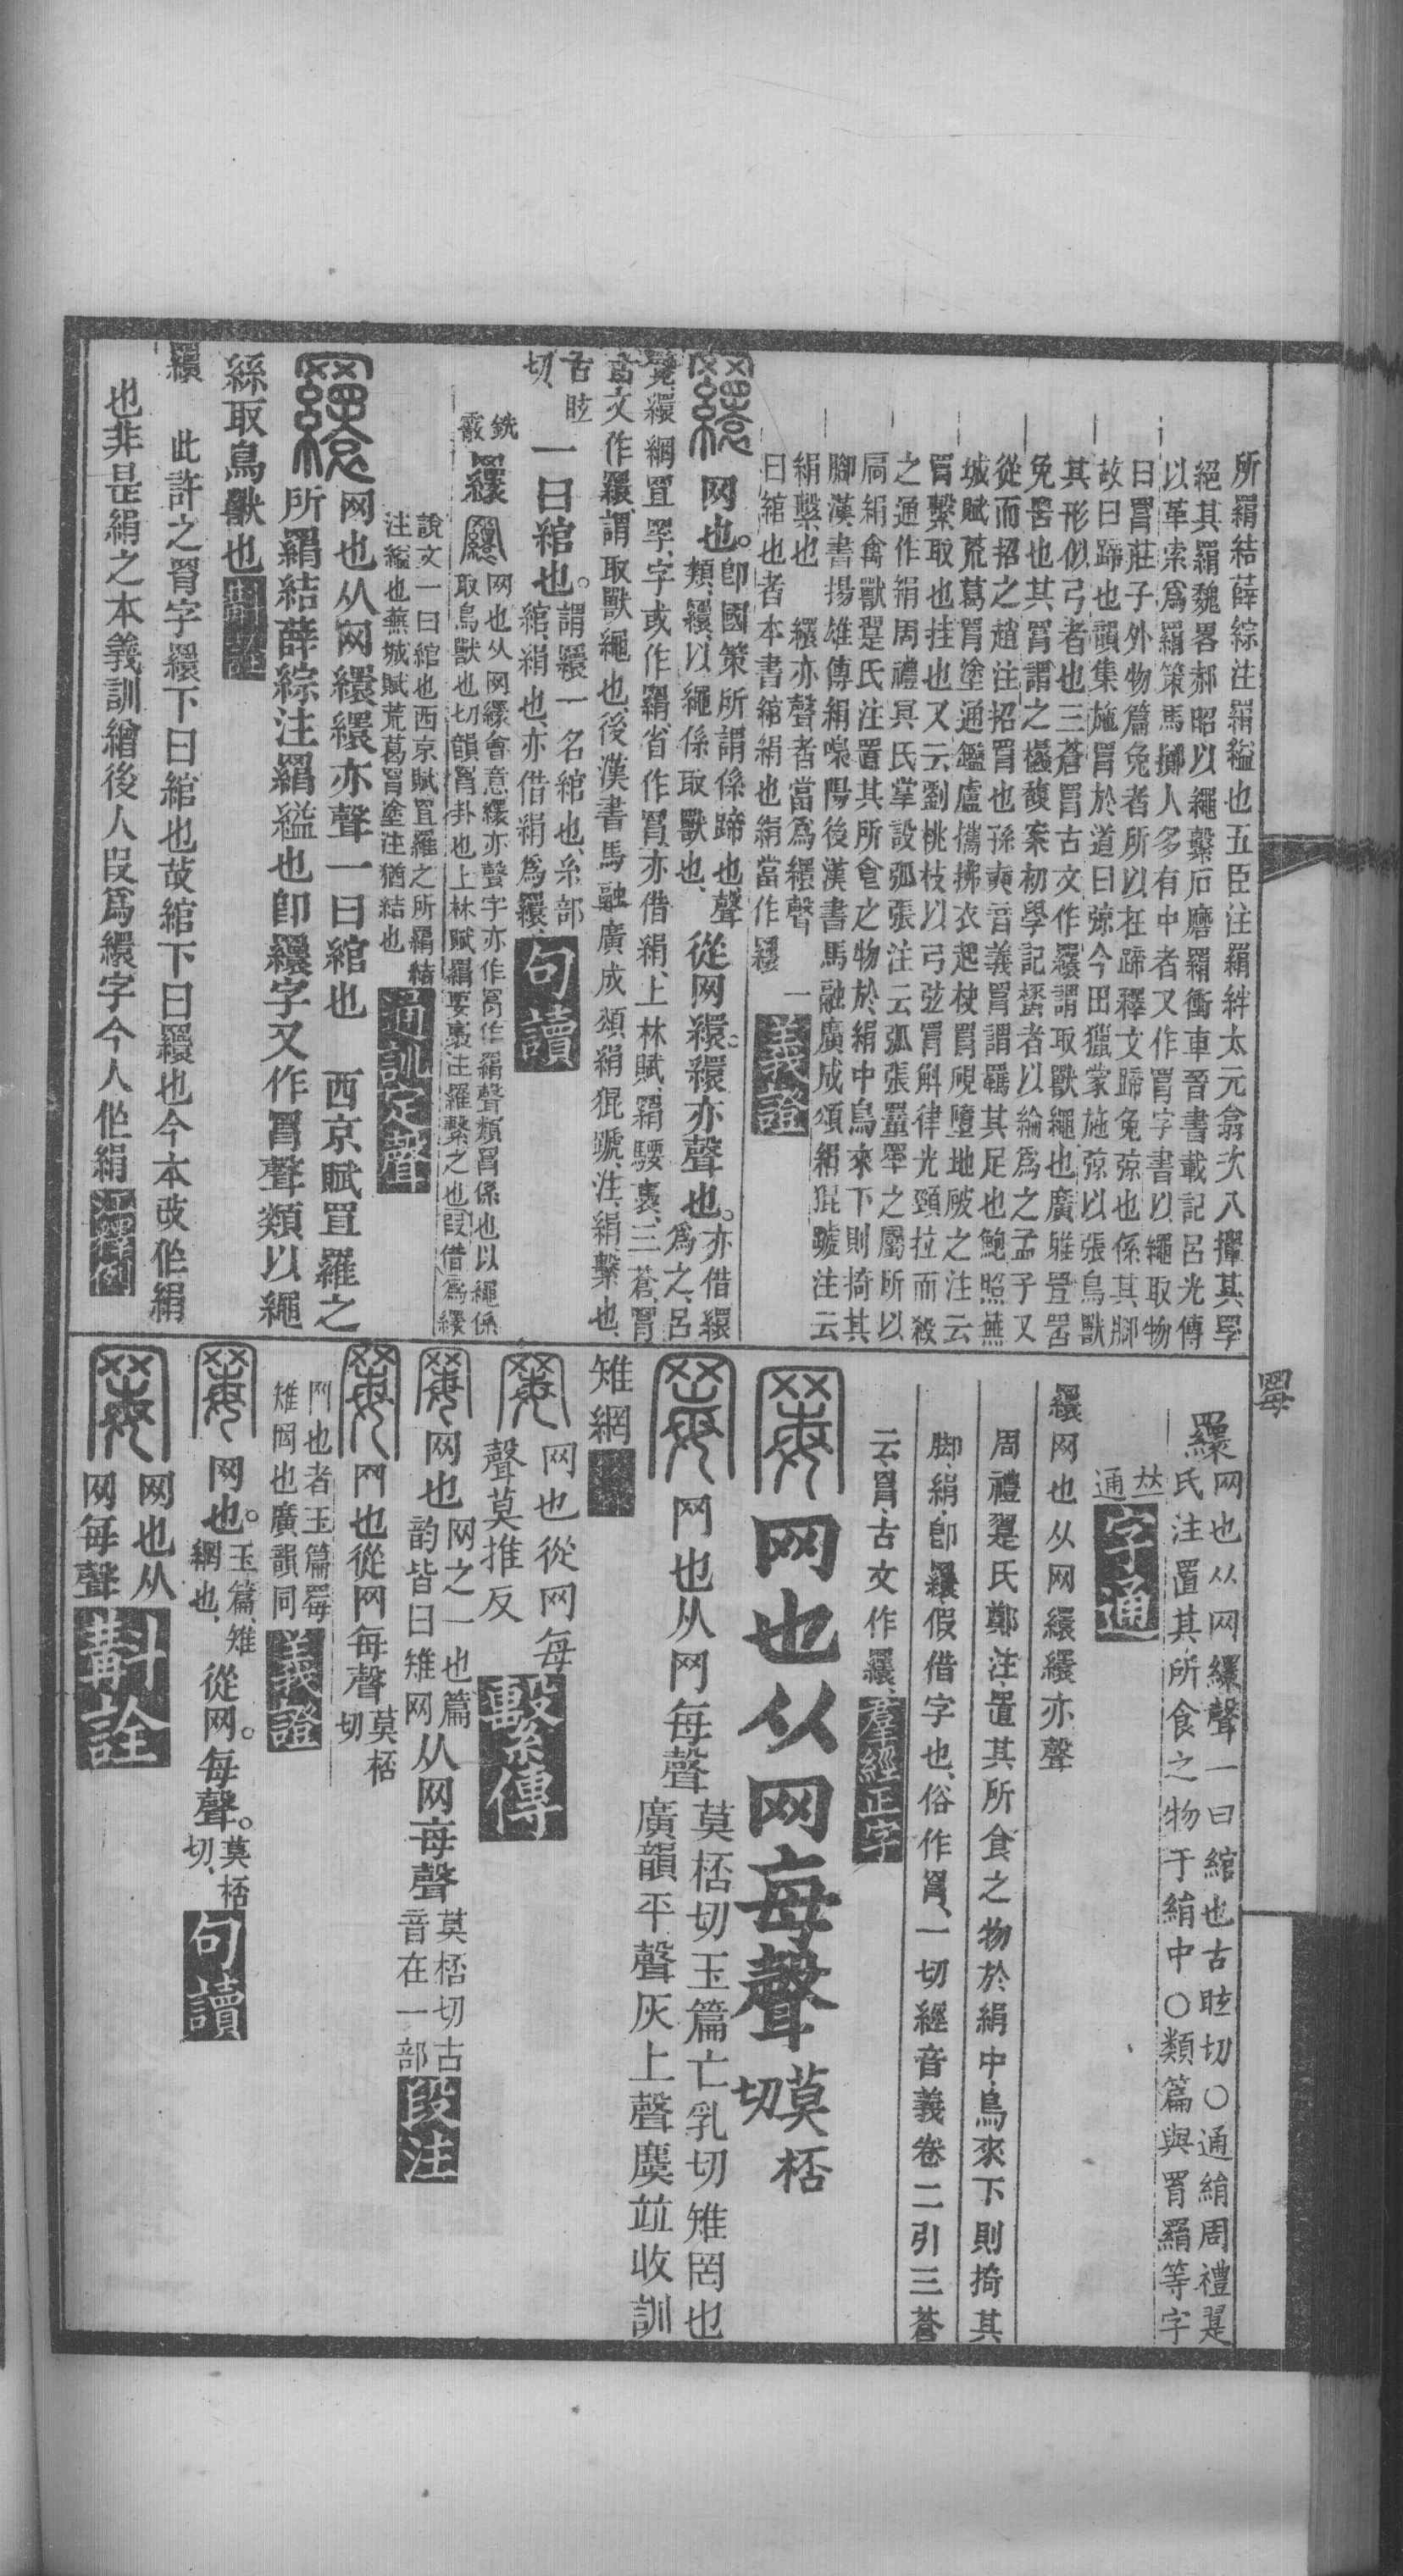 所羂結薛綜注羂縊也五臣注羂絆太元翕次八撣其罕
絕其羂魏畧郝昭以繩繫石磨羂衝車晉書載記呂光傳
以革索爲羂策馬擲人多有中者又作罥字書以繩取物
曰罥莊子外物篇兔者所以在蹄釋文蹄兔弶也係其腳
故曰蹄也韻集施罥於道曰弶今田獵家施弶以張鳥獸
其形似弓者也三蒼罥古文作羉謂取獸繩也廣雅罝罟
兔罟也其罥謂之
從而招之趙注招罥也孫奭音義罥謂羈其足也鮑照蕪
城賦荒葛罥塗通鑑盧攜拂衣起袂罥硯墮地破之注云
罥繫取也挂也又云劉桃枝以弓弦罥斛律光頸拉而殺
之通作絹周禮冥氏掌設弧張注云弧張罿罦之屬所以
扃絹禽獸翨氏注置其所食之物於絹中鳥來下則掎其
腳漢書揚雄傳絹嘄陽後漢書馬融廣成頌絹猑蹏注云
絹繫也 繯亦聲者當爲繯聲
曰綰也者本書綰絹也絹當作 一義證
网也。卽國策所謂係蹄也聲
類以繩係取獸也 從网繯繯亦聲也。亦借繯
爲之呂
覽繯網罝罕字或作羂省作罥亦借絹上林賦羂騕褭三蒼罥
古文作謂取獸繩也後漢書馬融廣成頌絹猑蹏注絹繫也
古眩
切 一曰綰也。謂一名綰也糸部
綰絹也亦借絹爲 句讀
銑
霰 网也从网繯會意繯亦聲字亦作罥作羂聲類罥係也以繩係
取鳥獸也切韻罥卦也上林賦羂要褭注羅繫之也叚借爲繯
說文一曰綰也西京賦罝羅之所羂結
注縊也蕪城賦荒葛罥塗注猶結也 通訓定聲
网也从网繯繯亦聲一曰綰也 西京賦罝羅之
所羂結薛綜注羂縊也卽繯字又作罥聲類以繩
絲取鳥獸也 斠詮
此許之罥字下曰綰也故綰下曰也今本改作絹
也非是絹之本義訓繒後人叚爲字今人作絹
网也从网繯聲一曰綰也古眩切○通絹周禮翨
氏注置其所食之物于絹中○類篇與罥羂等字
𠀤
通 字通
网也从网繯繯亦聲
周禮翨氏鄭注置其所食之物於絹中鳥來下則掎其
脚絹卽假借字也俗作罥一切經音義卷二引三蒼
云罥古文作 羣經正字
网也从网每聲 莫桮
切
网也从网每聲 莫桮切玉篇亡乳切雉罔也
廣韻平聲灰上聲麌竝收訓
雉網
网也從网每
聲莫推反 繫傳
网也网之一也篇
韵皆曰雉网 从网每聲 莫桮切古
音在一部 段注
网也從网每聲 莫桮
切
网也者玉篇
雉罔也廣韻同 義證
网也。玉篇雉
網也 從网。每聲。莫桮
切 句讀
网也从
网每聲 斠詮